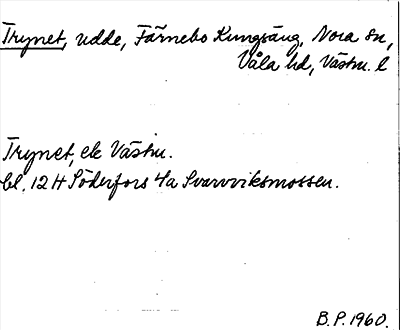 Trynet, udde, Färnebo Kungsäng, Nora sn,
Våla hd, Västm. l
Trynet, ek Västm.
bl. 12 H Söderfors 4a Svarvviksmossen.
B.P. 1960.